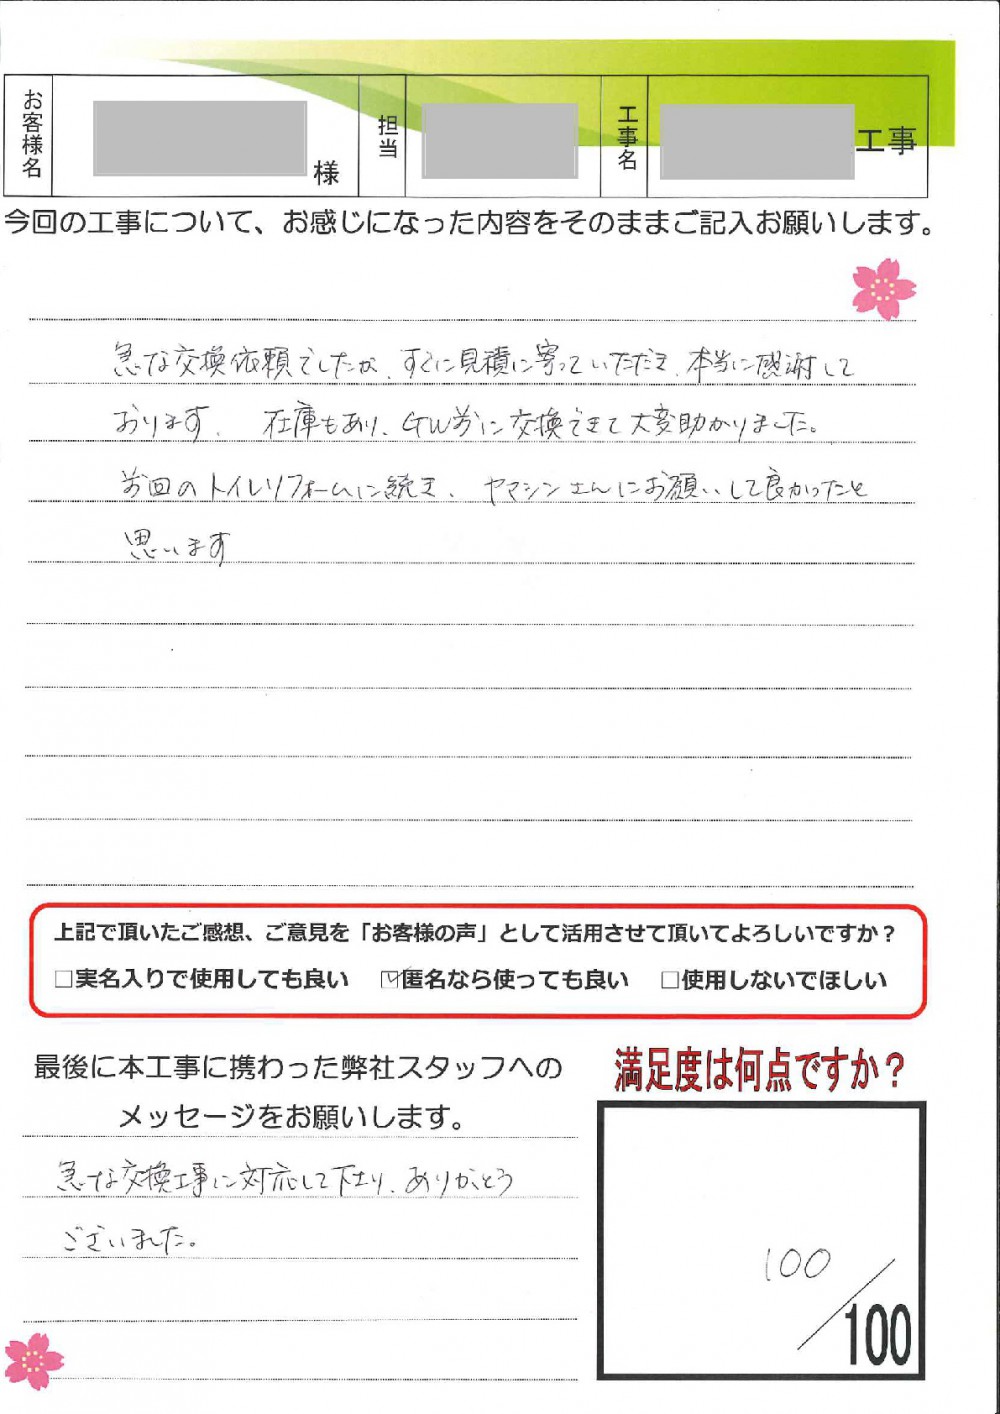 お客様名
様
担当
工事名
工事
今回の工事について、お感じになった内容をそのままご記入お願いします。
急な交換依頼でしたが、すぐに見積に寄っていただき、本当に感謝して
おります。 在庫もあり、GW前に交換できて大変助かりました。
前回のトイレリフォームに続き、ヤマシンさんにお願いして良かったと
思います
上記で頂いたご感想、ご意見を「お客様の声」として活用させて頂いてよろしいですか？
□実名入りで使用しても良い ☑匿名なら使っても良い □使用しないでほしい
最後に本工事に携わった弊社スタッフへの
メッセージをお願いします。
急な交換工事に対応して下さり、ありがとう
ございました。
満足度は何点ですか？
100/100